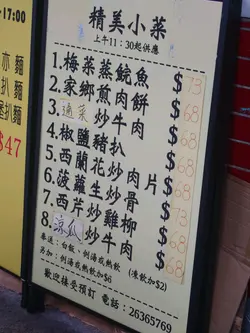 -17:00
亦麵
扒麵
扒麵
$47
精美小菜
上午11:30起供應
1.梅菜蒸鯇魚 $73
2.家鄉煎肉餅 $68
3.過菜炒牛肉 $68
4.椒鹽豬扒 $68
5.西蘭花炒肉片 $68
6.菠蘿生炒骨 $
7.西芹炒雞柳 $68
8.涼瓜炒牛肉 $68
奉送:白飯、例湯或熱飲(凍飲加$2)
另加:例湯或熱飲加$6
歡迎接受預訂 電話:26365769